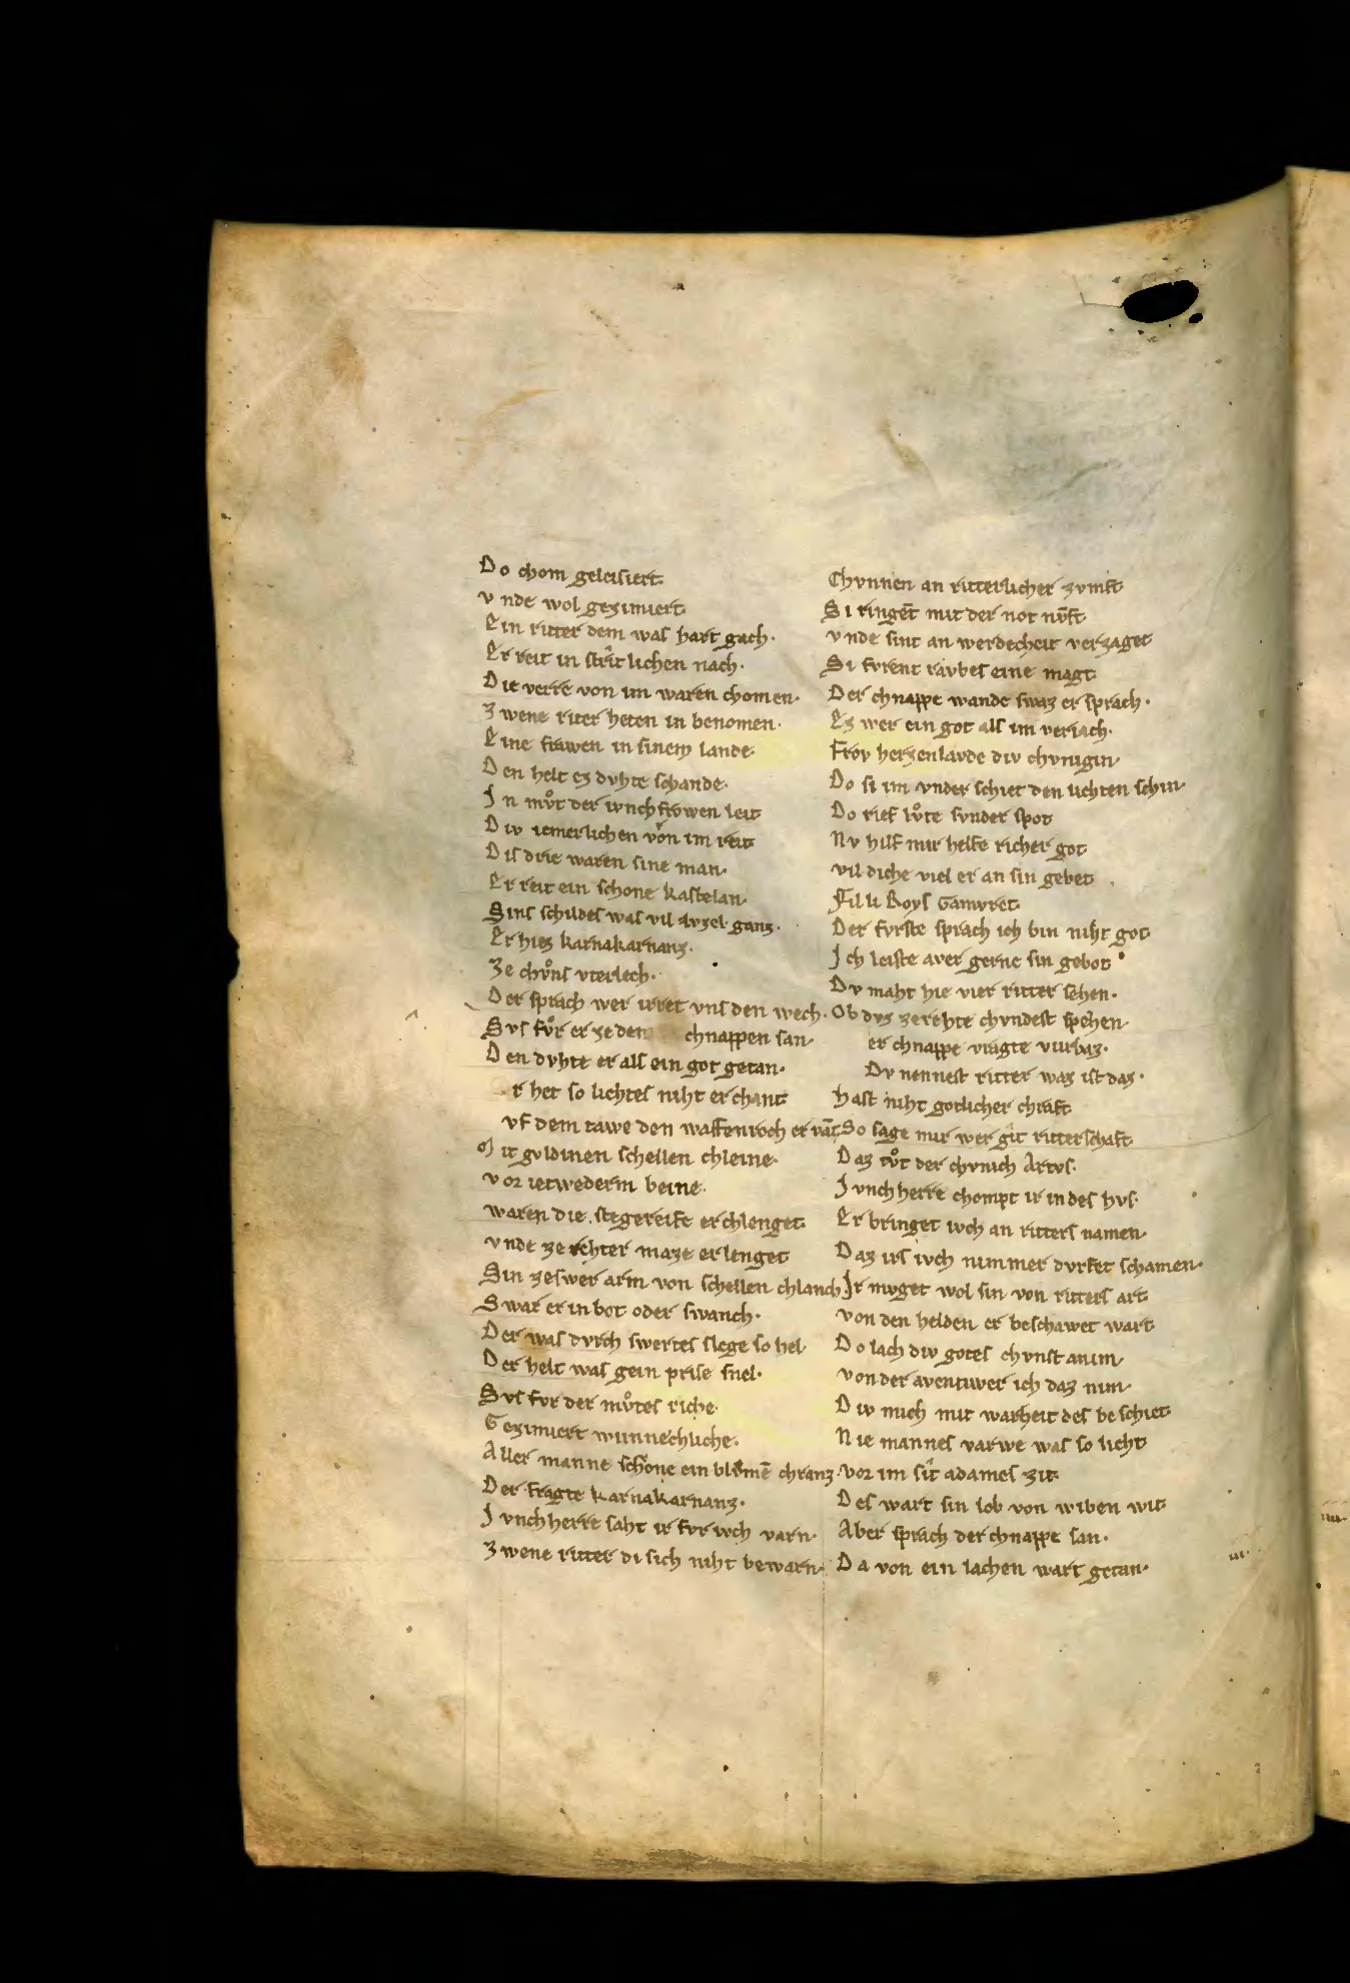 Do chom geleisiert
vnde wol gezimiert
Ein ritter dem was hart gach·
Er reit in stritlichen nach·
Die verre von im waren chomen·
Zwene riter heten in benomen·
Eine frawen in sinem lande·
Den helt ez dvhte schande·
In mvͦt der ivnchfrowen leit
Div iemerlichen von im reit
Dis drie waren sine man·
Er reit ein schone kastelan·
Sins schildes was vil lvzel ganz·
Er hiez karnakarnanz·
Ze chvͦns vterlech·
Der sprach wer irret vns den wech·
Svs fvͦr er ze den chnappen san·
Den dvhte er als ein got getan·
r het so lichtes niht erchant
vf dem tawe den waffenroch er vāt
Mit gvldinen schellen chleine·
vor ietwederm beine·
waren die stegereife erchlenget
vnde ze rehter maze erlenget
Sin zeswer arm von schellen chlanch
Swar er in bot oder swanch·
Der was dvrch swertes slege so hel·
Der helt was gein prise snel·
Svs fvr der mvͦtes riche·
Gezimiert wunnechliche·
Aller manne schone ein blvͦmē chranz·
Der fragte karnakarnanz·
Ivnchherre saht ir fvr ivch varn·
Zwene ritter di sich niht bewarn·
Chvnnen an ritterlicher zvmft
Si ringēt mit der not nvͦft
vnde sint an werdecheit verzaget
Si fvrent ravbes eine magt
Der chnappe wande swaz er sprach·
Ez wer ein got als im veriach·
Frov herzenlavde div chvnigin·
Do si im vnder schiet den lichten schin·
Do rief lvͦte svnder spot
Nv hilf mir helfe richer got
vil diche viel er an sin gebet
Fil li Roys Gamvret
Der fvrste sprach ich bin niht got
Ich leiste aver gerne sin gebot
Dv maht hie vier ritter sehen·
Ob dvz zerehte chvndest spehen·
er chnappe vragte vurbaz·
Dv nennest ritter waz ist daz·
hast niht gotlicher chraft
So sage mir wer git ritterschaft
Daz tvͦt der chvnich Artvs·
Ivnchherre chompt ir in des hvs·
Er bringet ivch an ritters namen·
Daz irs ivch nimmer dvrfet schamen·
Ir mvget wol sin von ritters art
von den helden er beschawet wart
Do lach div gotes chvnst an im·
von der aventiwer ich daz nim·
Div mich mit warheit des beschiet
Nie mannes varwe was so lieht
vor im sit adames zit·
Des wart sin lob von wiben wit
Aber sprach der chnappe san·
Da von ein lachen wart getan·